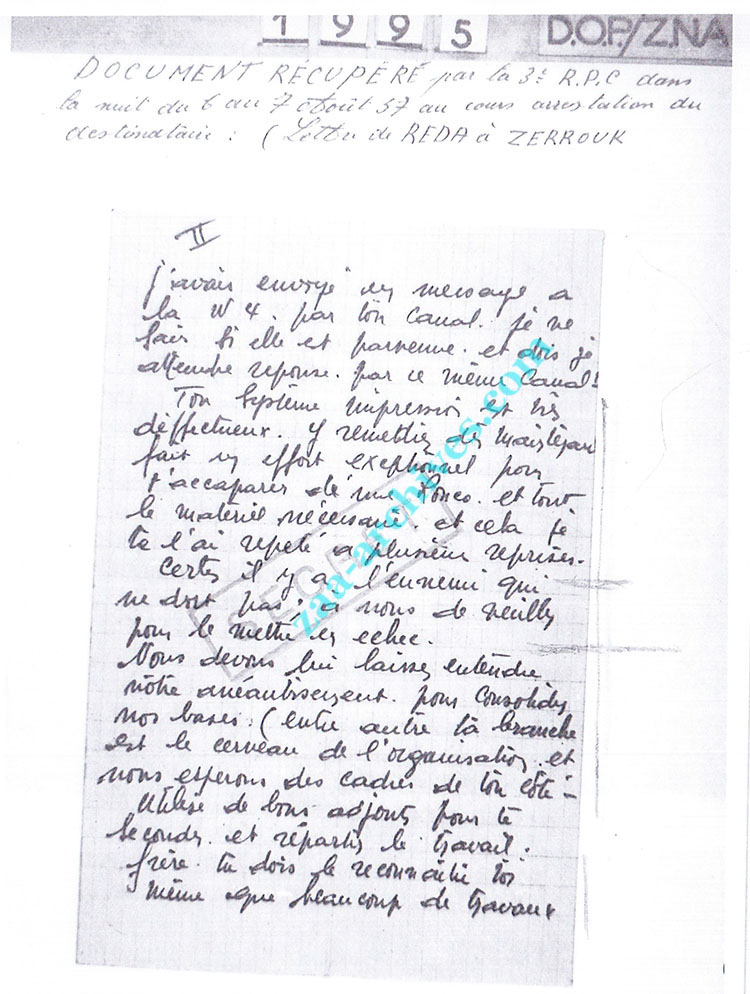 1995 D.O.P/Z.N.A
DOCUMENT RÉCUPÉRÉ par la 3e R.P.C dans
la nuit du 6 au 7 Août 57 au cours arrestation du
destinataire : ( Lettre de REDA à ZERROUK
II
j'avais envoyé un message a
la W 4. par ton canal. je ne
sais si elle est parvenue. et dois je
attendre reponse. par ce même canal!
Ton système impression est très
déffectueux. y remettre dès maintenant
fait un effort exceptionnel pour
t'accaparer de une Ronéo. et tout
le matériel nécessaire. et cela je
te l'ai repeté a plusieurs reprises.
certes il y a l'ennemi qui
ne dort pas; à nous de veiller
pour le mettre en echec.
Nous devons lui laisser entendre
notre anéantissement. pour consolider
nos bases. ( entre autre ta branche
est le cerveau de l'organisation. et
nous esperons des cadres de ton côté -
Utilise de bons adjoints pour te
seconder. et répartir le travail.
frère. tu dois le reconnaître toi
même que beaucoup de travaux
SECRET
zaa-archives.com